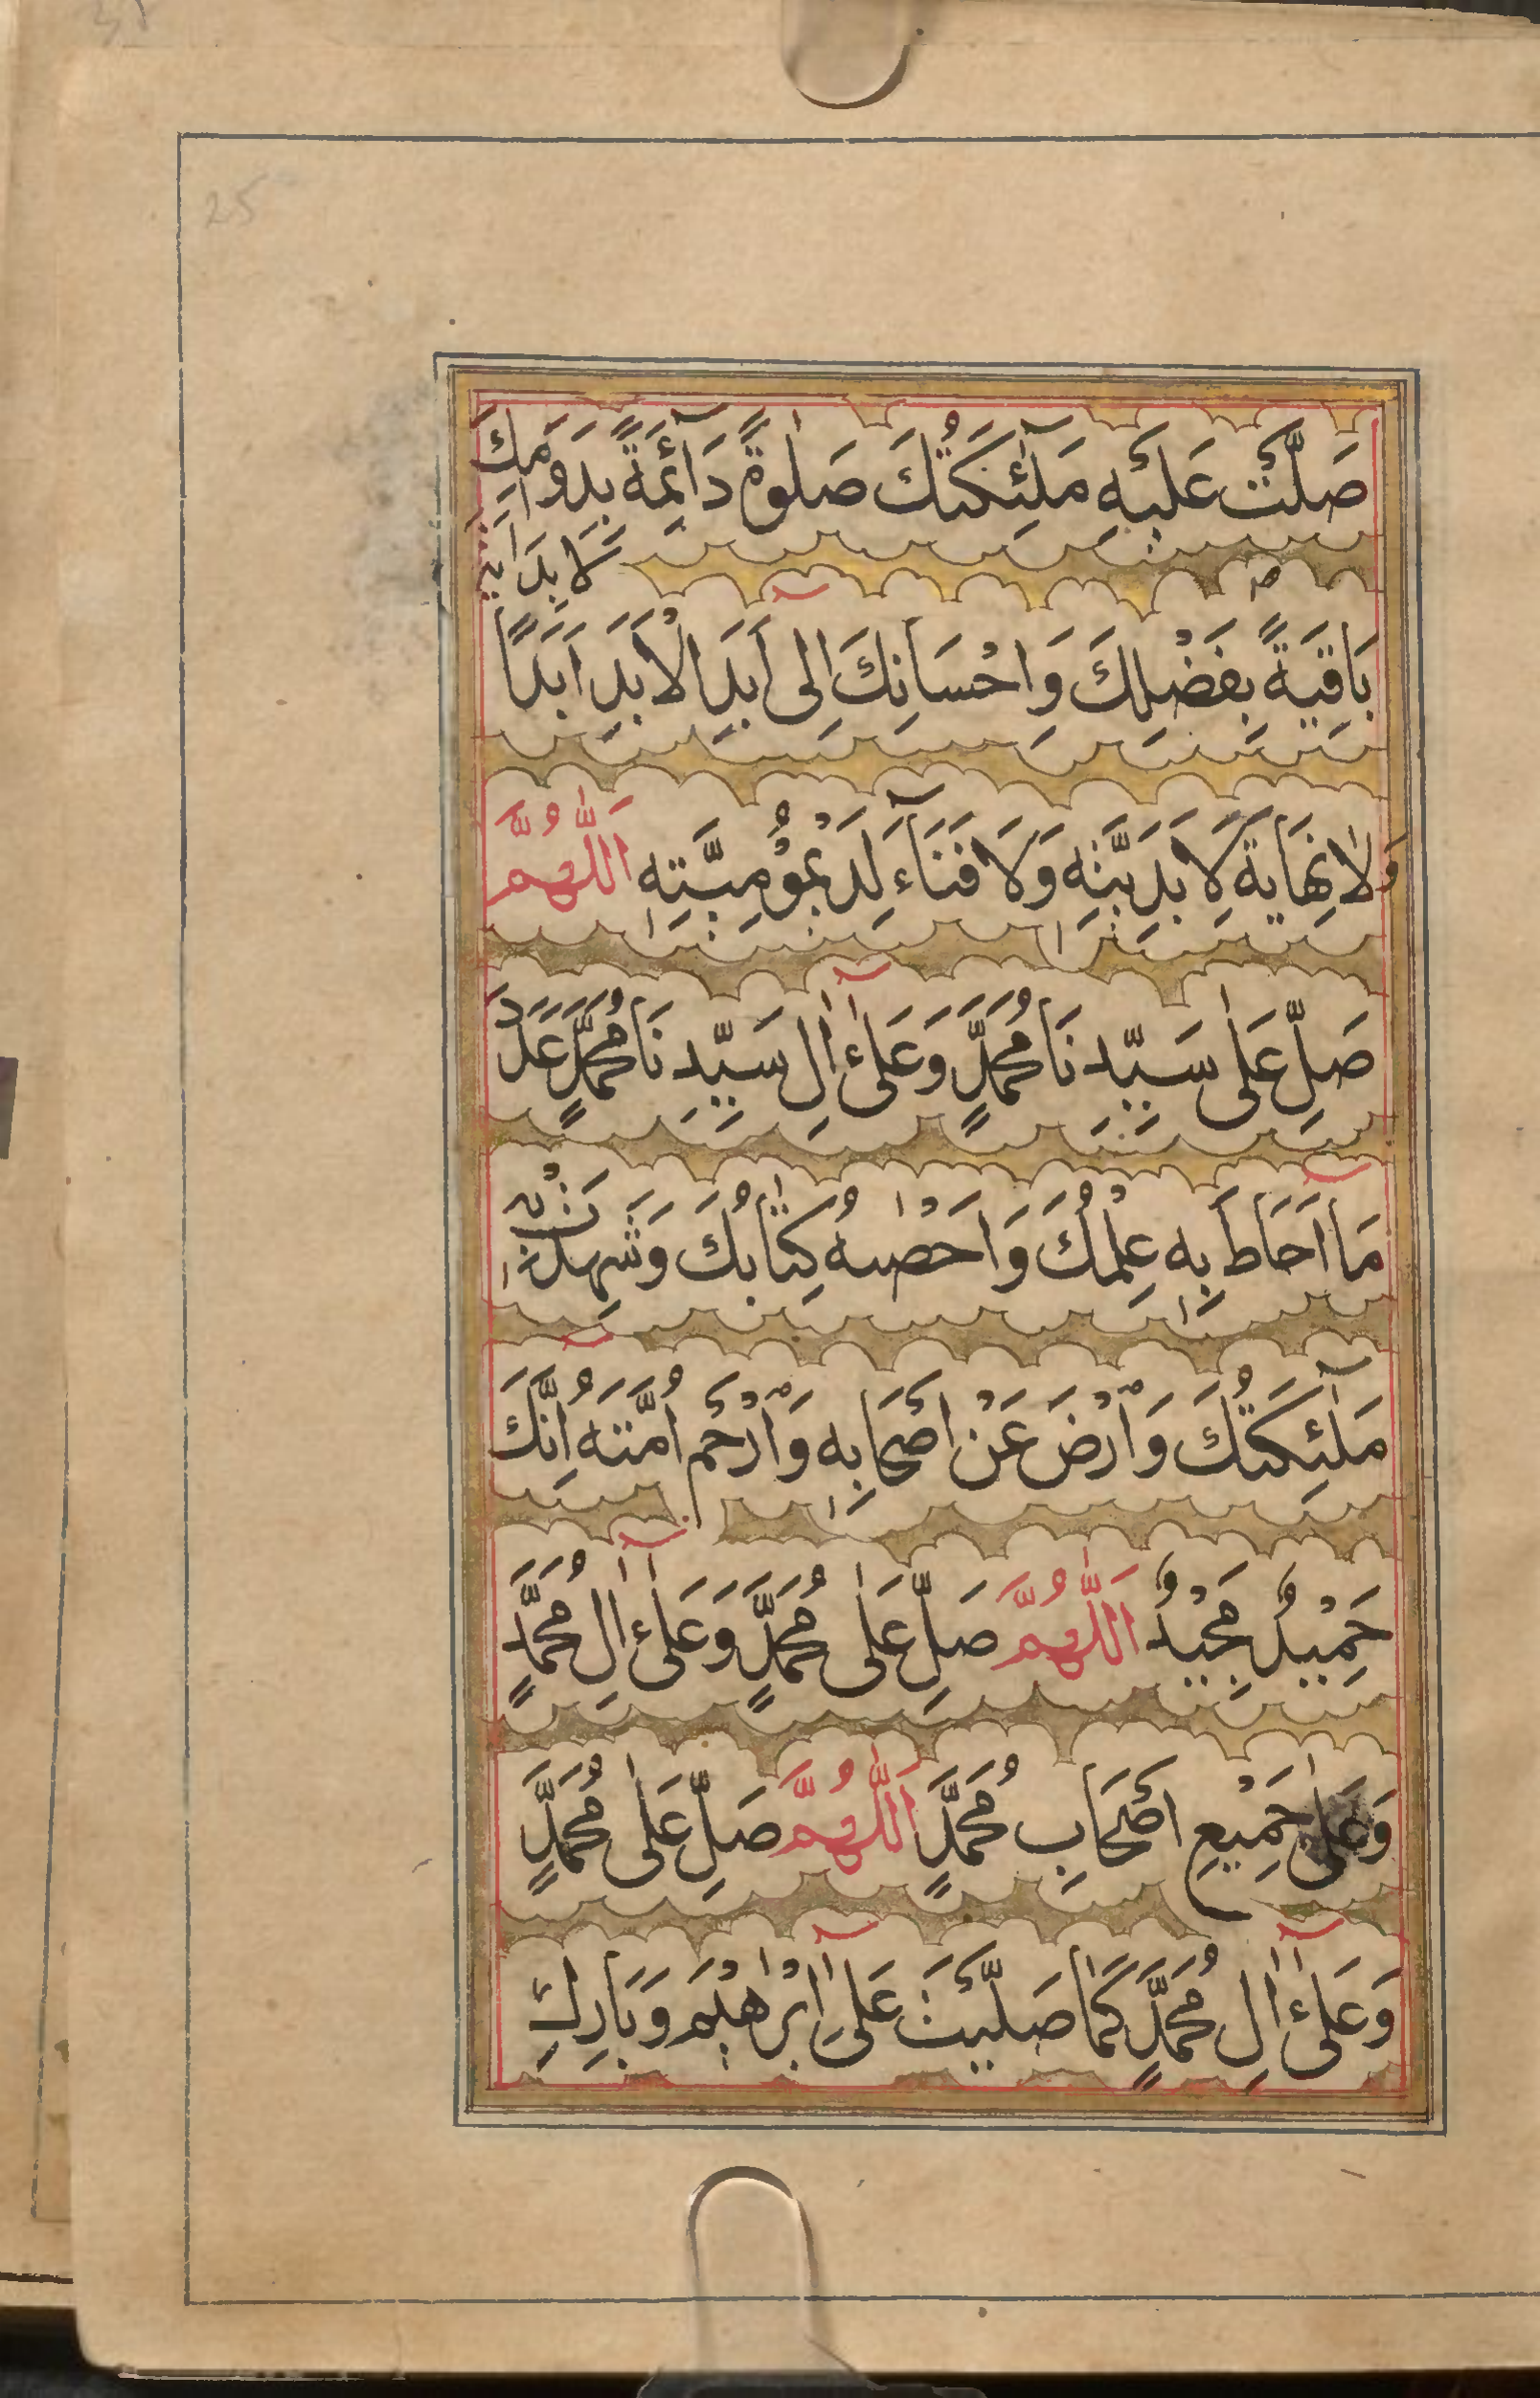 25
صَلَّتْ عَلَيْهِ مَلٰٓئِكَتُكَ صَلٰوةً دَآئِمَةً بِدَوَامِكَ
بَاقِيَةً بِفَضْلِكَ وَاِحْسَانِكَ اِلٰى اَبَدِ الْاَبَدِ اَبَدًا
لَا بِدَايَةَ
وَلَا نِهَايَةَ لِاَبَدِيَّتِهٖ وَلَا فَنَآءَ لِدَيْمُوْمِيَّتِهٖ اَللّٰهُمَّ
صَلِّ عَلٰى سَيِّدِنَا مُحَمَّدٍ وَعَلٰٓى اٰلِ سَيِّدِنَا مُحَمَّدٍ عَدَدَ
مَآ اَحَاطَ بِهٖ عِلْمُكَ وَاَحْصٰهُ كِتَابُكَ وَشَهِدَتْ بِهٖ
مَلٰٓئِكَتُكَ وَارْضَ عَنْ اَصْحَابِهٖ وَارْحَمْ اُمَّتَهُ اِنَّكَ
حَمِيْدٌ مَجِيْدٌ اَللّٰهُمَّ صَلِّ عَلٰى مُحَمَّدٍ وَعَلٰٓى اٰلِ مُحَمَّدٍ
وَعَلٰى جَمِيْعِ اَصْحَابِ مُحَمَّدٍ اَللّٰهُمَّ صَلِّ عَلٰى مُحَمَّدٍ
وَعَلٰٓى اٰلِ مُحَمَّدٍ كَمَا صَلَّيْتَ عَلٰٓى اِبْرٰهِيْمَ وَبَارِكْ